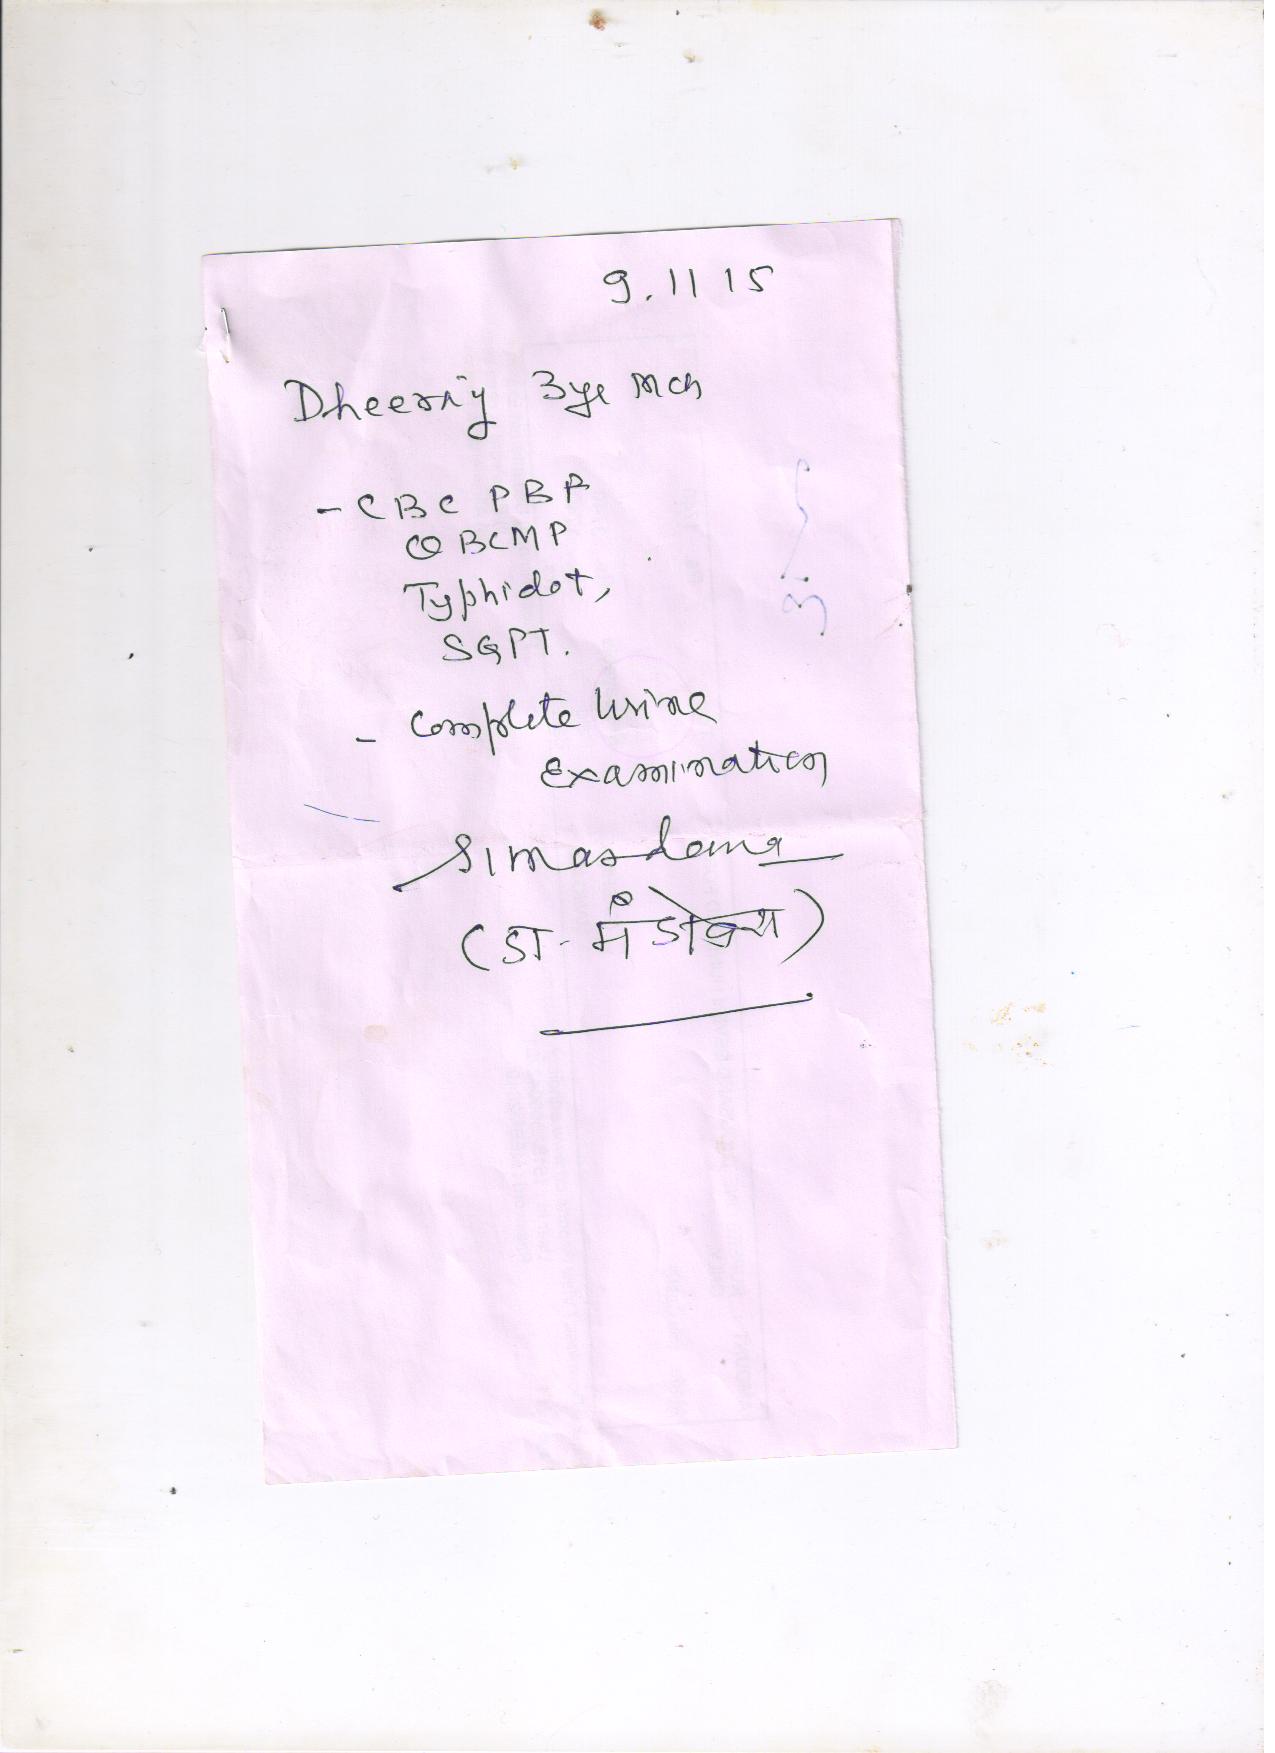 9.11 15
Dheeraj 3yr Mch
- CBC PBF
QBCMP
Typhidot,
SGPT.
- Complete Urine
Examination
(डा.